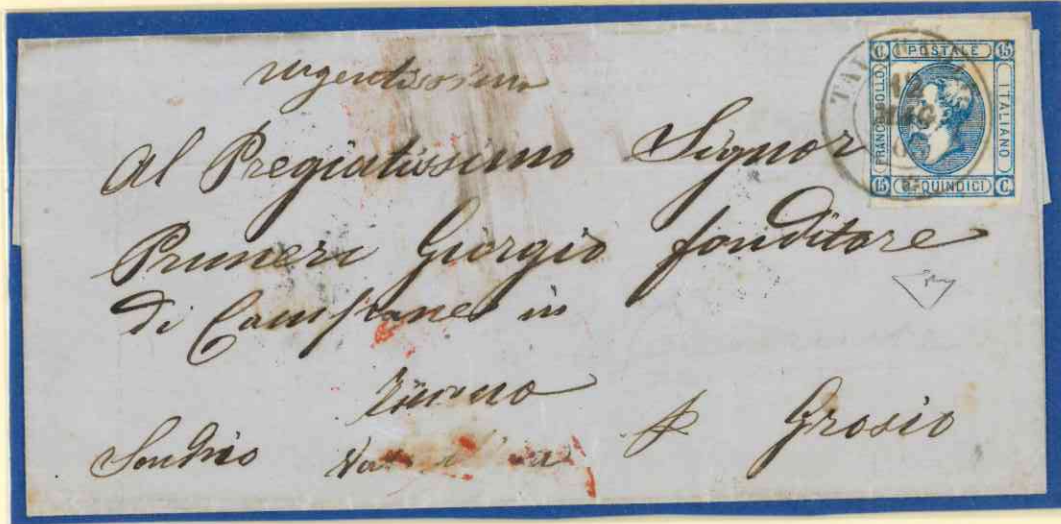 urgentissimo
Al Pregiatissimo Signor
Pruneri Giorgio fonditore
di Campane in
p Grosio
Sondrio
C. POSTALE 15
FRANCO BOLLO
ITALIANO
15 C. QUINDICI C.
12
MAG